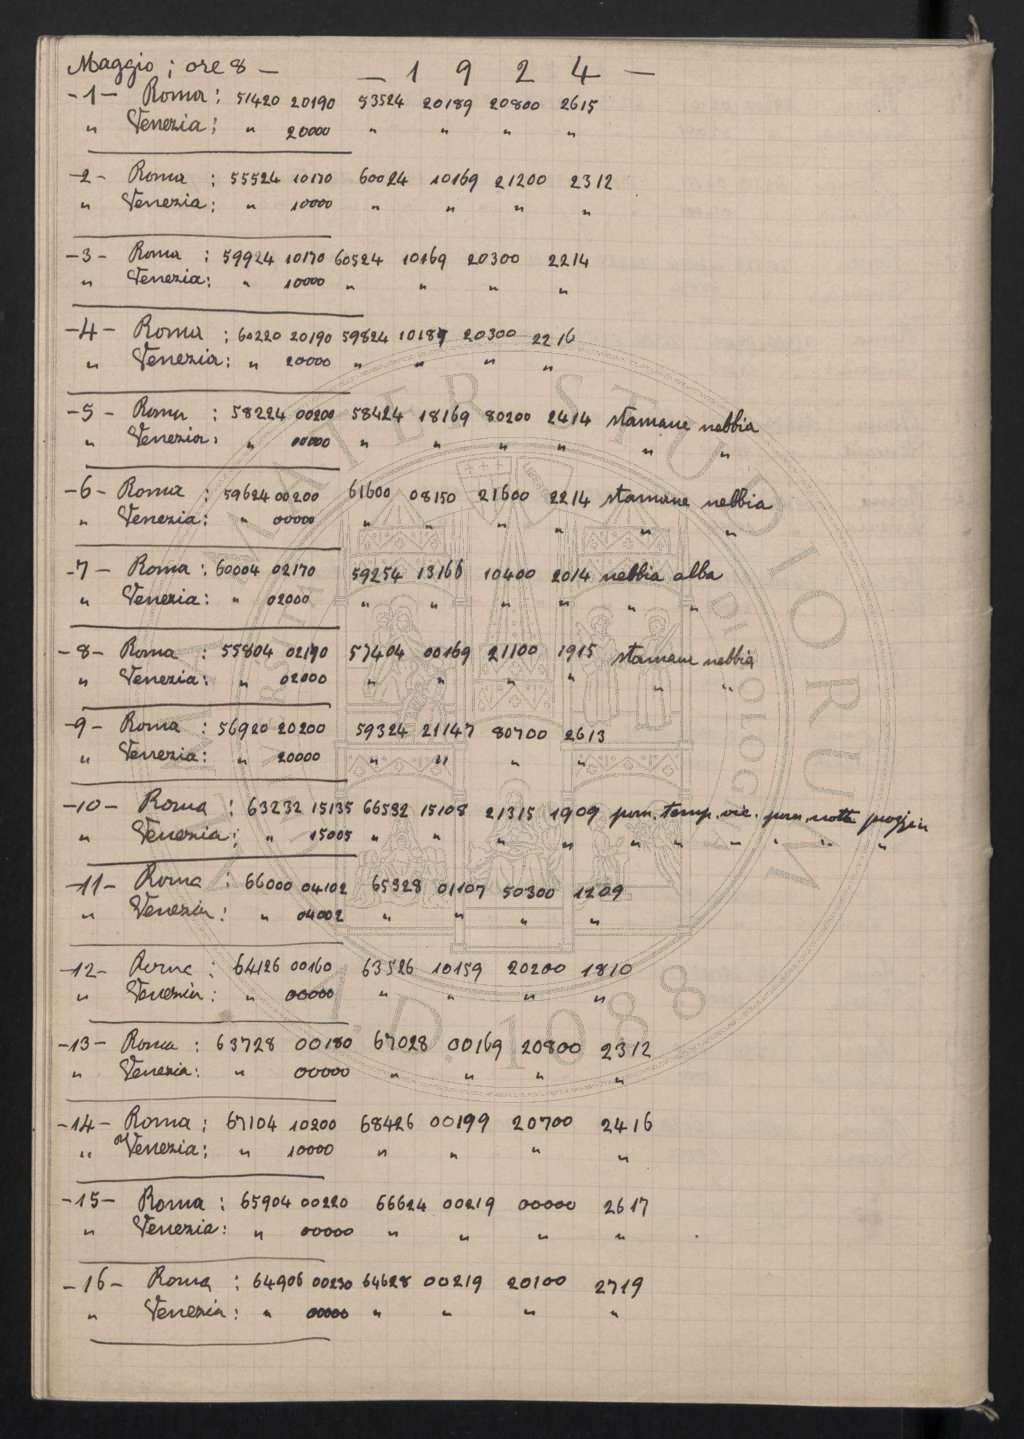 Maggio ; ore 8 — — 1 9 2 4 —
-1- Roma : 51420 20190 53524 20189 20800 2615
" Venezia : " 20000 " " " "
-2- Roma : 55524 10170 60024 10169 21200 2312
" Venezia : " 10000 " " " "
-3- Roma : 59924 10170 60524 10169 20300 2214
" Venezia : " 10000 " " " "
-4- Roma : 60220 20190 59824 10189 20300 2216
" Venezia : " 20000 " " " "
-5- Roma : 58224 00200 58424 18169 80200 2414 stamane nebbia
" Venezia : " 00000 " " " " " "
-6- Roma : 59624 00200 61600 08150 21600 2214 stamane nebbia
" Venezia : " 00000 " " " " " "
-7- Roma : 60004 02170 59254 13166 10400 2014 nebbia alba
" Venezia : " 02000 " " " " " "
-8- Roma : 55804 02190 57404 00169 21100 1915 stamane nebbia
" Venezia : " 02000 " " " " " "
-9- Roma : 56920 20200 59324 21147 80700 2613
" Venezia : " 20000 " " " "
-10- Roma : 63232 15135 66532 15108 21315 1909 pom. temp. vic. pom. notte
" Venezia : " 15005 " " " " " " " " " "
-11- Roma : 66000 04102 65328 01107 50300 1209
" Venezia : " 04002 " " " "
-12- Roma : 64126 00160 63526 10159 20200 1810
" Venezia : " 00000 " " " "
-13- Roma : 63728 00180 67028 00169 20800 2312
" Venezia : " 00000 " " " "
-14- Roma : 67104 10200 68426 00199 20700 2416
" Venezia : " 10000 " " " "
-15- Roma : 65904 00220 66624 00219 00000 2617
" Venezia : " 00000 " " " "
-16- Roma : 64906 00230 64628 00219 20100 2719
" Venezia : " 00000 " " " "
ALMA MATER STUDIORUM
A.D. 1088